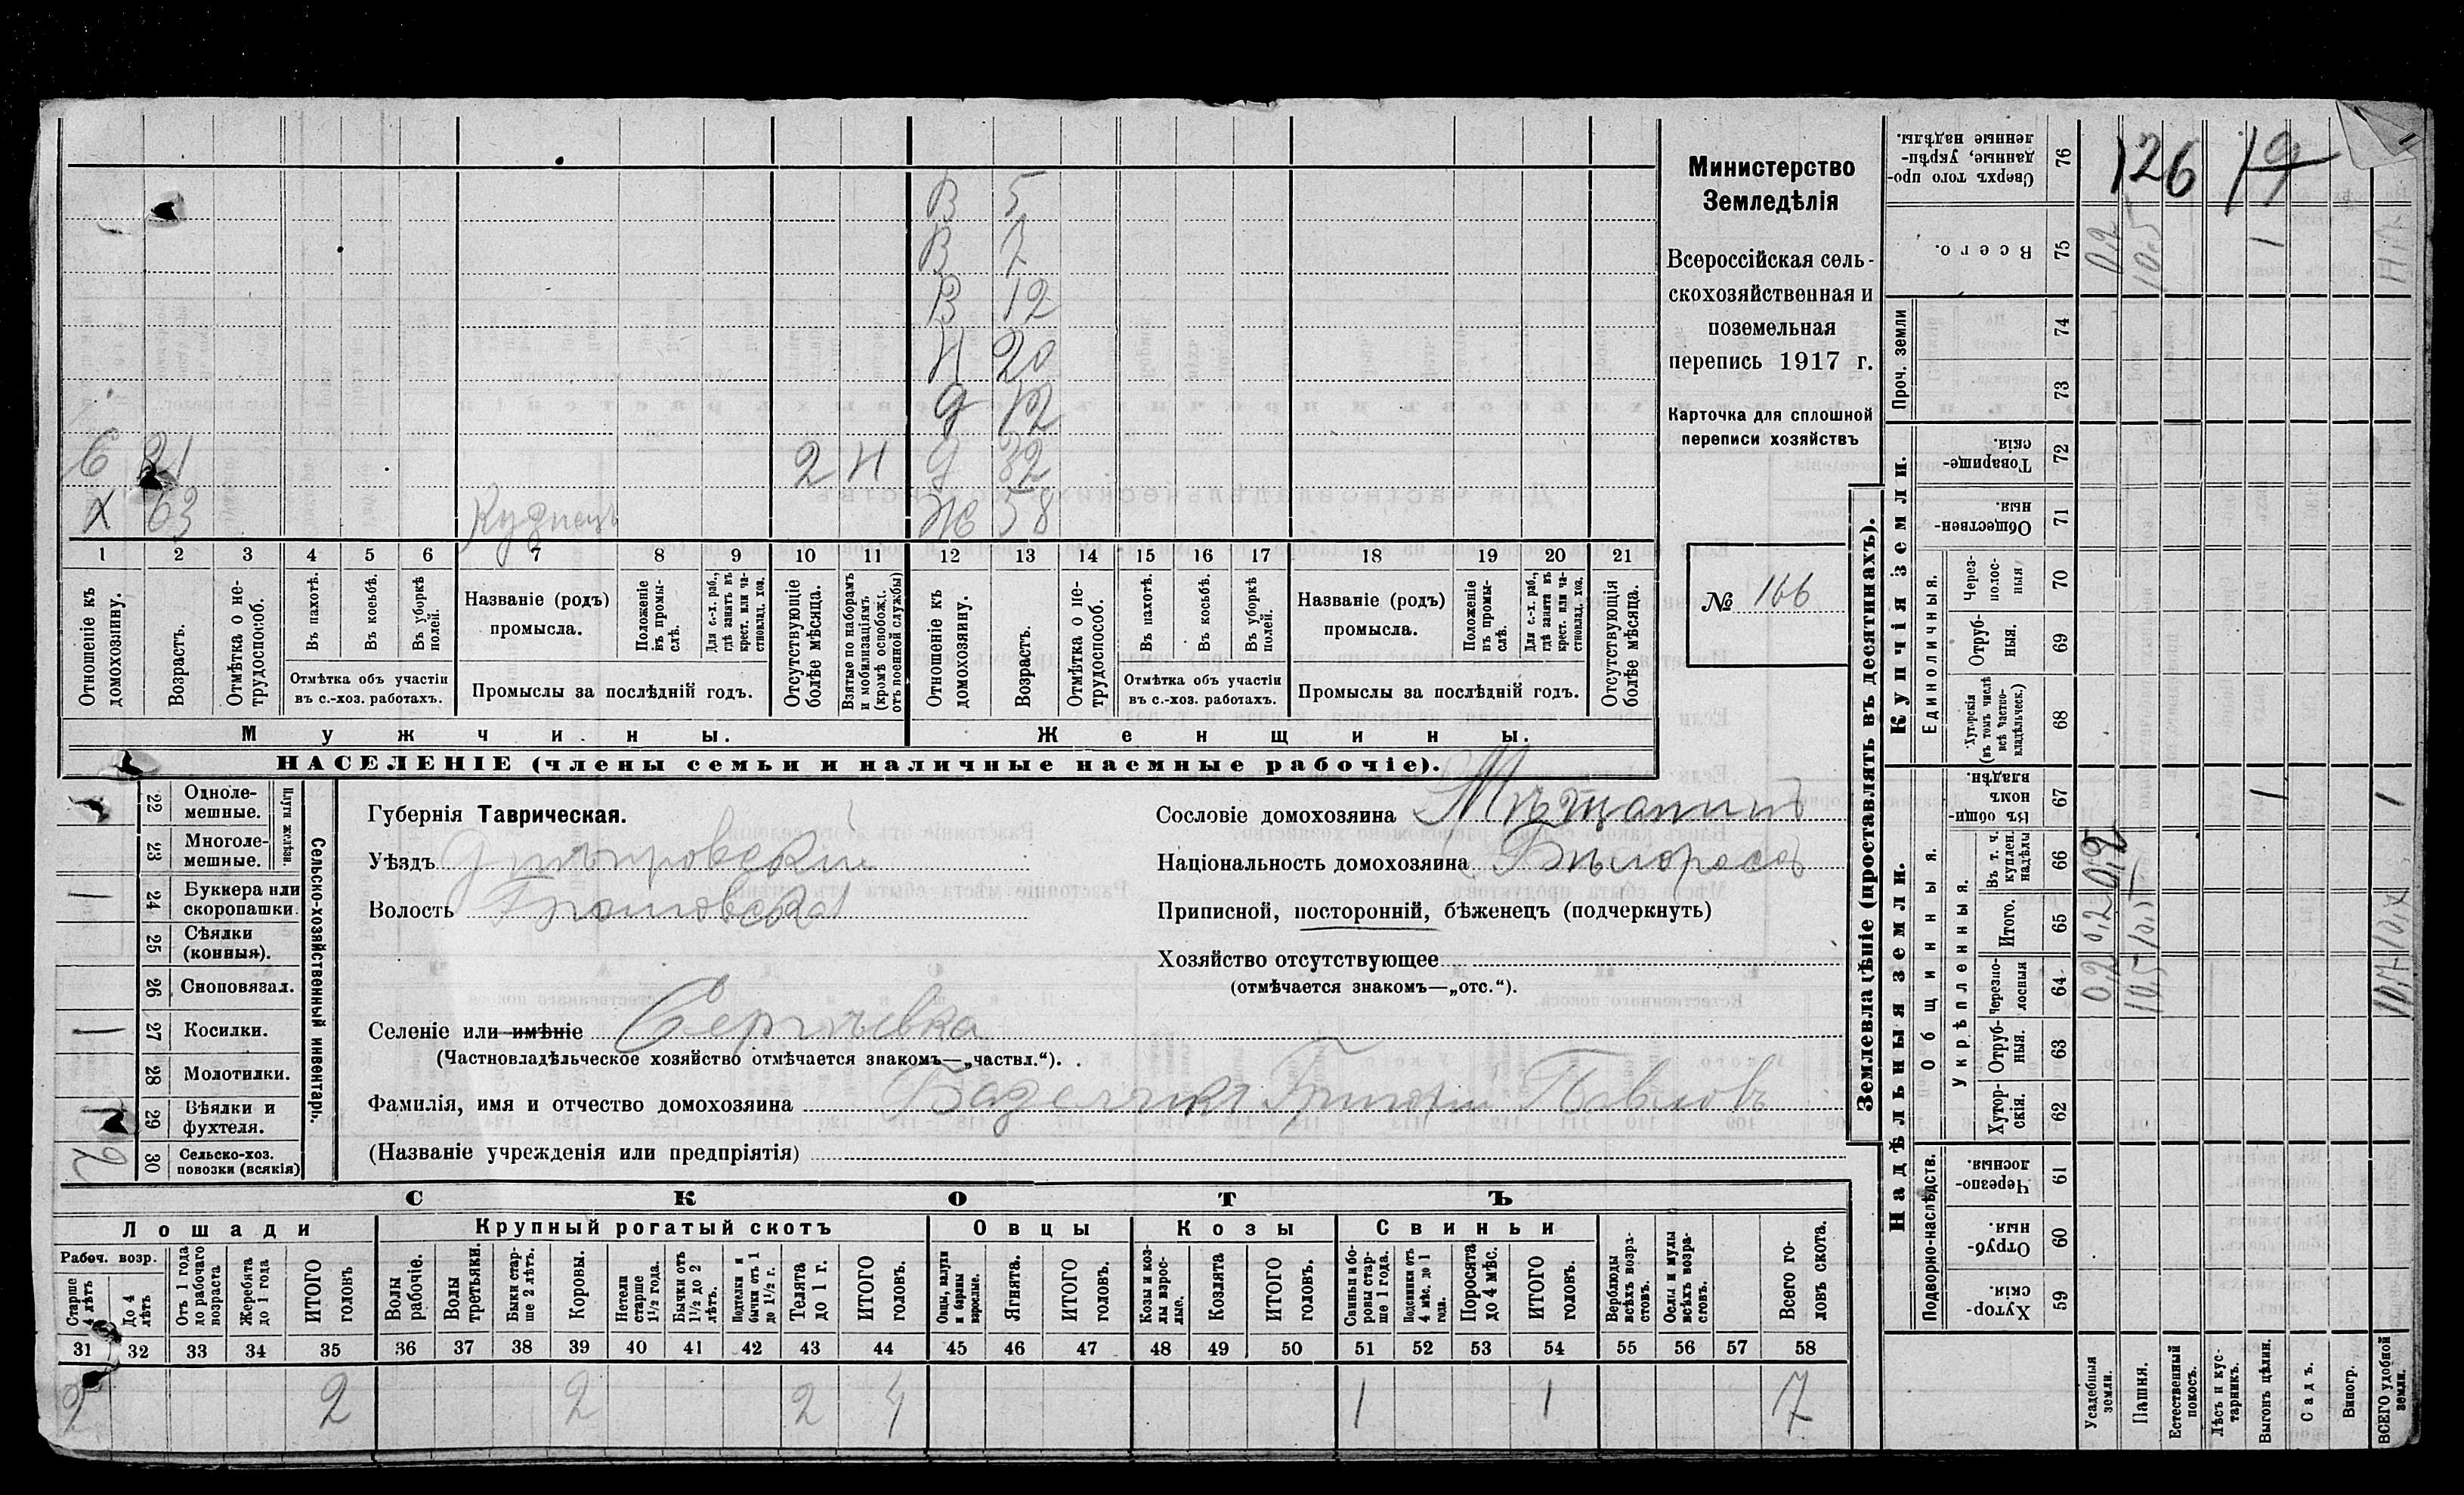 В 5
В 7
В 12
Н 20
д 12
6 21 2 Н д 32
Х 63 Кузнецъ Ж 58
1 2 3 4 5 6 7 8 9 10 11 12 13 14 15 16 17 18 19 20 21
Отношеніе къ домохозяину.
Возрастъ.
Отмѣтка о нетрудоспособ.
Въ пахотѣ.
Въ косьбѣ.
Въ уборкѣ полей.
Отмѣтка объ участіи
въ с.-хоз. работахъ.
Названіе (родъ)
промысла.
Положеніе въ промыслѣ.
Для с.-х. раб., гдѣ занятъ въ крест. или частновлад. хоз.
Промыслы за послѣдній годъ.
Отсутствующіе болѣе мѣсяца.
Взятые по наборамъ и мобилизаціямъ (кромѣ освобожд. отъ военной службы)
Отношеніе къ домохозяину.
Возрастъ.
Отмѣтка о нетрудоспособ.
Въ пахотѣ.
Въ косьбѣ.
Въ уборкѣ полей.
Отмѣтка объ участіи
въ с.-хоз. работахъ.
Названіе (родъ)
промысла.
Положеніе въ промыслѣ.
Для с.-х. раб., гдѣ занята въ крест. или частновлад. хоз.
Промыслы за послѣдній годъ.
Отсутствующія болѣе мѣсяца.
Мужчины.
Женщины.
НАСЕЛЕНІЕ (члены семьи и наличные наемные рабочіе).
Министерство
Земледѣлія
Всероссійская сель-
скохозяйственная и
поземельная
перепись 1917 г.
Карточка для сплошной
переписи хозяйствъ
№ 166
22 Одноле-
мешные.
23 Многоле-
мешные.
Плуги желѣзн.
1 24 Буккера или
скоропашки.
25 Сѣялки
(конныя).
26 Сноповязал.
1 27 Косилки.
28 Молотилки.
1 29 Вѣялки и
фухтеля.
2 30 Сельско-хоз.
повозки (всякія)
Сельско-хозяйственный инвентарь.
Губернія Таврическая.
Уѣздъ Днѣпровскій
Волость
Селеніе или имѣніе Сергѣевка
(Частновладѣльческое хозяйство отмѣчается знакомъ—„частвл.“).
Фамилія, имя и отчество домохозяина Григорій Павловъ
(Названіе учрежденія или предпріятія)
Сословіе домохозяина Мѣщанинъ
Національность домохозяина Бѣлороссъ
Приписной, посторонній, бѣженецъ (подчеркнуть)
Хозяйство отсутствующее
(отмѣчается знакомъ—„отс.“).
СКОТЪ
Лошади
Крупный рогатый скотъ
Овцы
Козы
Свиньи
Рабоч. возр.
Старше 4 лѣтъ
До 4 лѣтъ
Отъ 1 года до рабочаго возраста
Жеребята до 1 года
ИТОГО головъ
Волы рабочіе.
Волы третьяки.
Быки старше 2 лѣтъ.
Коровы.
Нетели старше 1½ года.
Бычки отъ 1½ до 2 лѣтъ.
Подтелки и бычки отъ 1 до 1½ г.
Телята до 1 г.
ИТОГО головъ.
Овцы, валухи и бараны взрослые.
Ягнята.
ИТОГО головъ.
Козы и козлы взрослые.
Козлята
ИТОГО головъ.
Свиньи и боровы старше 1 года.
Подсвинки отъ 4 мѣс. до 1 года.
Поросята до 4 мѣс.
ИТОГО головъ.
Верблюды всѣхъ возрастовъ.
Ослы и мулы всѣхъ возрастовъ.
Всего головъ скота.
31 32 33 34 35 36 37 38 39 40 41 42 43 44 45 46 47 48 49 50 51 52 53 54 55 56 57 58
2 2 2 2 4 1 1 7
Землевладѣніе (проставлять въ десятинахъ).
Сверхъ того проданные, укрѣпленные надѣлы. 76 126 19
Всего. 75 0,2 10.5 1
Проч. земли 74
73
Купчія земли.
Товарищескія. 72
Общественныя. 71
Единоличныя.
Черезполосныя 70
Отрубныя. 69
Хуторскія (въ томъ числѣ всѣ частновладѣльческ.) 68
Надѣльныя земли.
Общинныя.
Въ общинномъ владѣн. 67 1 1
Укрѣпленныя.
Въ т. ч. куплен. надѣлы 66 0,2
Итого. 65 0,2 10,5 10,7
Черезполосныя 64 0,2 10.5 10,7
Отрубныя. 63
Хуторскія. 62
Подворно-наслѣдств.
Черезполосныя. 61
Отрубныя. 60
Хуторскія. 59
Усадебныя земли.
Пашня.
Естественный покосъ.
Лѣсъ и кустарникъ.
Выгонъ цѣлин.
Садъ.
Виногр.
ВСЕГО удобной земли.